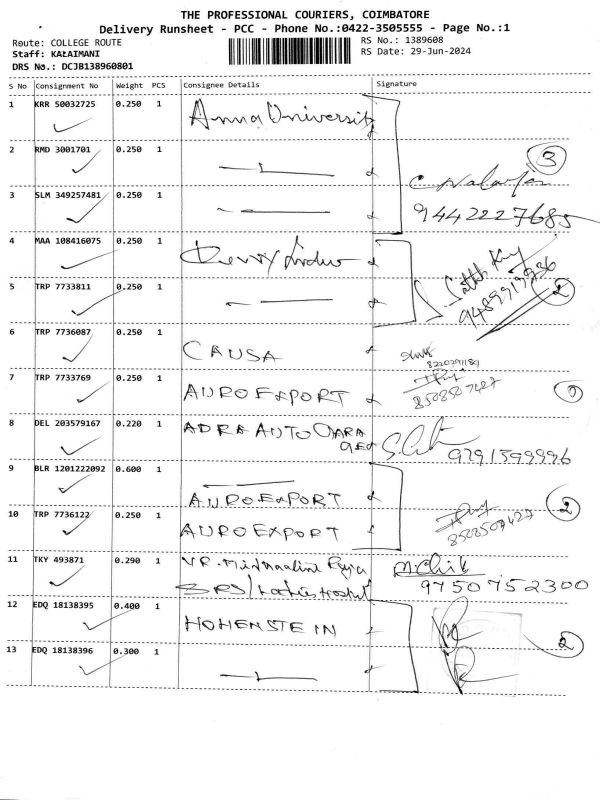 THE PROFESSIONAL COURIERS, COIMBATORE
Delivery Runsheet - PCC - Phone No.:0422-3505555 - Page No.:1
Route: COLLEGE ROUTE
RS No.: 1389608
Staff: KALAIMANI
RS Date: 29-Jun-2024
DRS No.: DCJB138960801
S No Consignment No Weight PCS Consignee Details Signature
1 KRR 50032725 0.250 1 Anna University
2 RMD 3001701 0.250 1
3
3 SLM 349257481 0.250 1
9442227685
4 MAA 108416075 0.250 1
5 TRP 7733811 0.250 1
9489919936
2
6 TRP 7736087 0.250 1 CAUSA
7 TRP 7733769 0.250 1 AURO EXPORT
8508507427
8 DEL 203579167 0.220 1 ADRA AUTO
9791599996
9 BLR 1201222092 0.600 1 AURO EXPORT
2
10 TRP 7736122 0.250 1 AURO EXPORT
8508507427
11 TKY 493871 0.290 1
9750752300
12 EDQ 18138395 0.400 1 HOHENSTEIN
2
13 EDQ 18138396 0.300 1